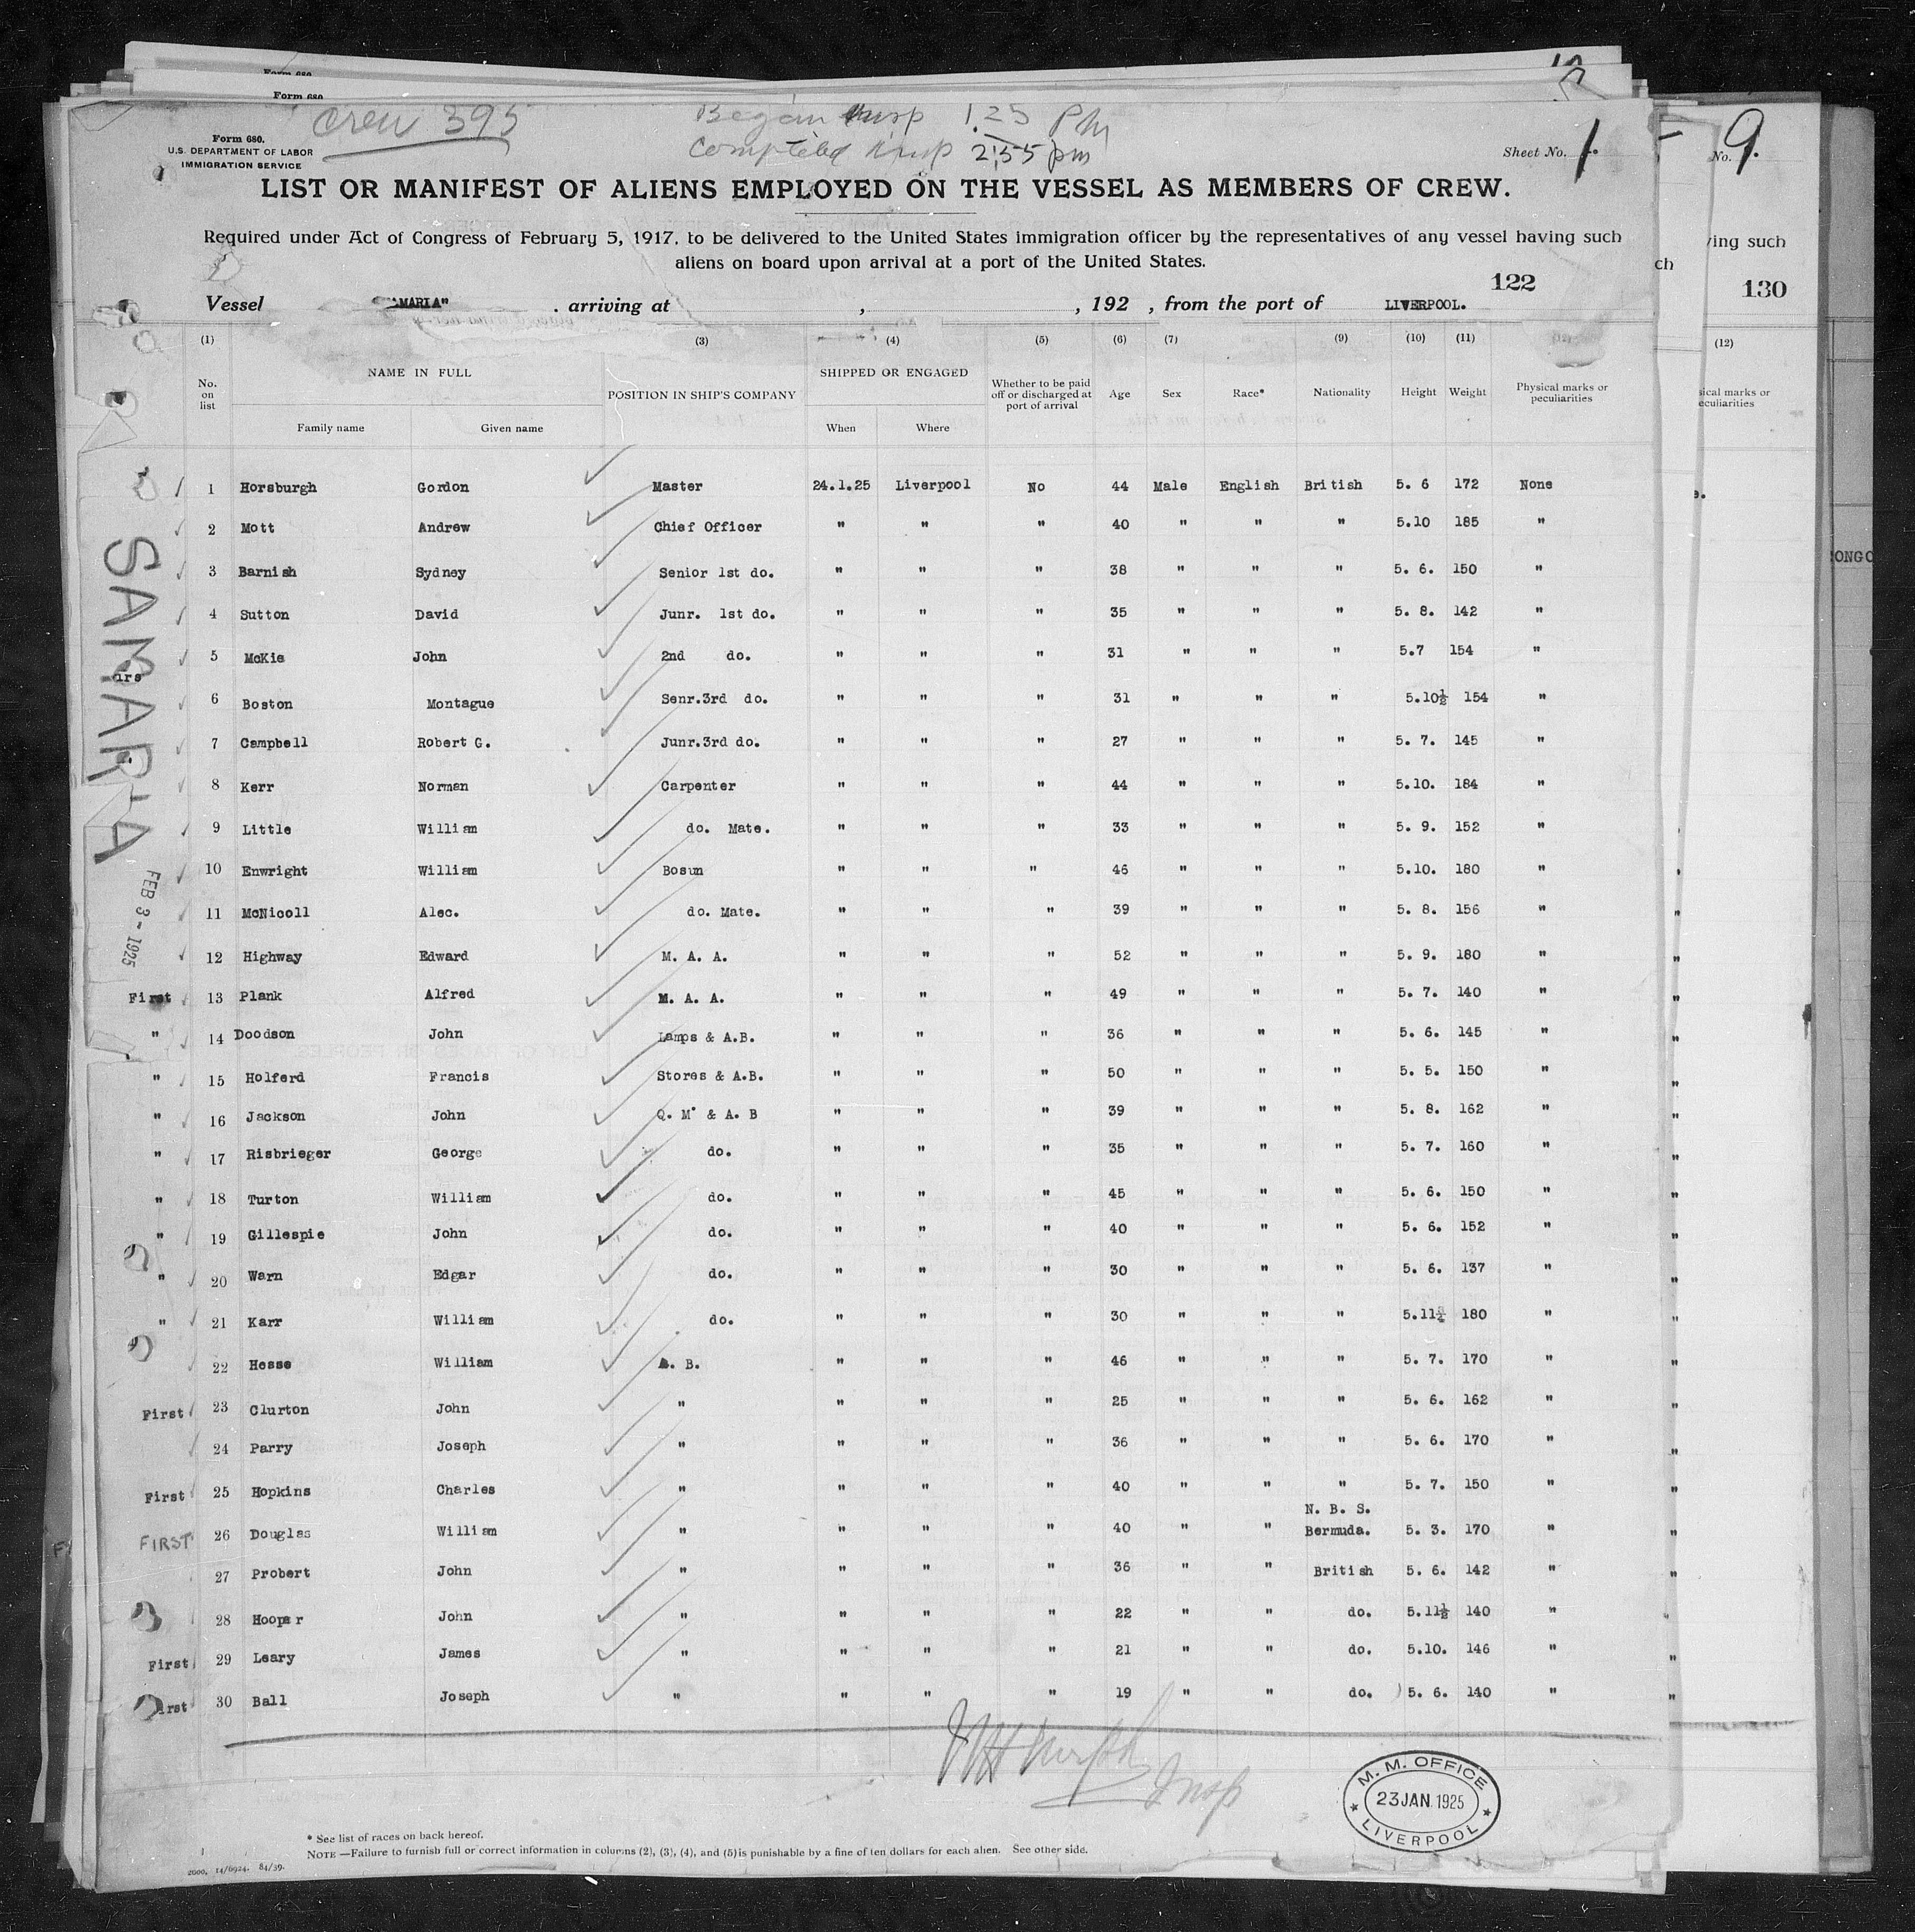 Form 680.
Form 680
crew 395
Began Insp 1.25 PM
Completed Insp 2:55 pm
Form 680.
U.S. DEPARTMENT OF LABOR
IMMIGRATION SERVICE
Sheet No. 1.
No. 9.
LIST OR MANIFEST OF ALIENS EMPLOYED ON THE VESSEL AS MEMBERS OF CREW.
Required under Act of Congress of February 5, 1917, to be delivered to the United States immigration officer by the representatives of any vessel having such
aliens on board upon arrival at a port of the United States.
ving such
ch
122
130
Vessel "SAMARIA" . arriving at , , 192 , from the port of LIVERPOOL.
(1) (3) (4) (5) (6) (7) (9) (10) (11) (12)
No. on list
NAME IN FULL
Family name Given name
POSITION IN SHIP'S COMPANY
SHIPPED OR ENGAGED
When Where
Whether to be paid off or discharged at port of arrival
Age Sex Race* Nationality Height Weight
Physical marks or peculiarities
sical marks or
eculiarities
1 Horsburgh Gordon Master 24.1.25 Liverpool No 44 Male English British 5. 6 172 None
2 Mott Andrew Chief Officer " " " 40 " " " 5.10 185 "
3 Barnish Sydney Senior 1st do. " " " 38 " " " 5. 6. 150 "
4 Sutton David Junr. 1st do. " " " 35 " " " 5. 8. 142 "
5 McKie John 2nd do. " " " 31 " " " 5.7 154 "
6 Boston Montague Senr.3rd do. " " " 31 " " " 5.10½ 154 "
7 Campbell Robert G. Junr.3rd do. " " " 27 " " " 5. 7. 145 "
8 Kerr Norman Carpenter " " " 44 " " " 5.10. 184 "
9 Little William do. Mate. " " " 33 " " " 5. 9. 152 "
10 Enwright William Bosun " " " 46 " " " 5.10. 180 "
11 McNicoll Alec. do. Mate. " " " 39 " " " 5. 8. 156 "
12 Highway Edward M. A. A. " " " 52 " " " 5. 9. 180 "
First 13 Plank Alfred M. A. A. " " " 49 " " " 5. 7. 140 "
" 14 Doodson John Lamps & A.B. " " " 36 " " " 5. 6. 145 "
" 15 Holferd Francis Stores & A.B. " " " 50 " " " 5. 5. 150 "
" 16 Jackson John Q. M. & A. B " " " 39 " " " 5. 8. 162 "
" 17 Risbrieger George do. " " " 35 " " " 5. 7. 160 "
" 18 Turton William do. " " " 45 " " " 5. 6. 150 "
" 19 Gillespie John do. " " " 40 " " " 5. 6. 152 "
" 20 Warn Edgar do. " " " 30 " " " 5. 6. 137 "
" 21 Karr William do. " " " 30 " " " 5.11¾ 180 "
22 Hesse William A. B. " " " 46 " " " 5. 7. 170 "
First 23 Clurton John " " " " 25 " " " 5. 6. 162 "
24 Parry Joseph " " " " 36 " " " 5. 6. 170 "
First 25 Hopkins Charles " " " " 40 " " " 5. 7. 150 "
FIRST 26 Douglas William " " " " 40 " " N. B. S. Bermuda. 5. 3. 170 "
27 Probert John " " " " 36 " " British 5. 6. 142 "
28 Hooper John " " " " 22 " " do. 5.11½ 140 "
First 29 Leary James " " " " 21 " " do. 5.10. 146 "
First 30 Ball Joseph " " " " 19 " " do. 5. 6. 140 "
SAMARIA
FEB 3 - 1925
Insp
M. M. OFFICE
23 JAN. 1925
LIVERPOOL
* See list of races on back hereof.
NOTE—Failure to furnish full or correct information in columns (2), (3), (4), and (5) is punishable by a fine of ten dollars for each alien. See other side.
2000, 14/6924. 84/39.